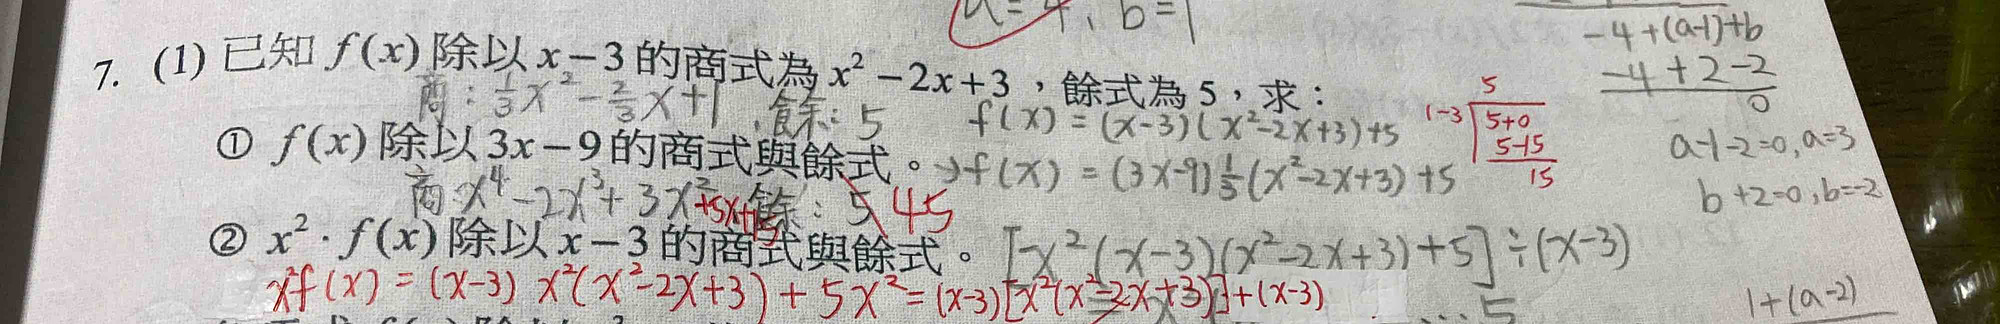 a=4, b=1
-4+(a-1)+b
7. (1) 已知 f(x) 除以 x-3 的商式為 x²-2x+3，餘式為 5，求：
-4+2-2
0
商：1/3x²-2/3x+1，餘：5
f(x)=(x-3)(x²-2x+3)+5
5
1-3 5+0
5-15
15
a-1-2=0, a=3
① f(x) 除以 3x-9 的商式與餘式。
→f(x)=(3x-9)1/3(x²-2x+3)+5
b+2=0, b=-2
商:x⁴-2x³+3x²+5x+15 餘：5 45
② x²·f(x) 除以 x-3 的商式與餘式。
[x²(x-3)(x²-2x+3)+5]÷(x-3)
x²f(x)=(x-3)x²(x²-2x+3)+5x²=(x-3)[x²(x²-2x+3)]+(x-3)
...5
1+(a-2)